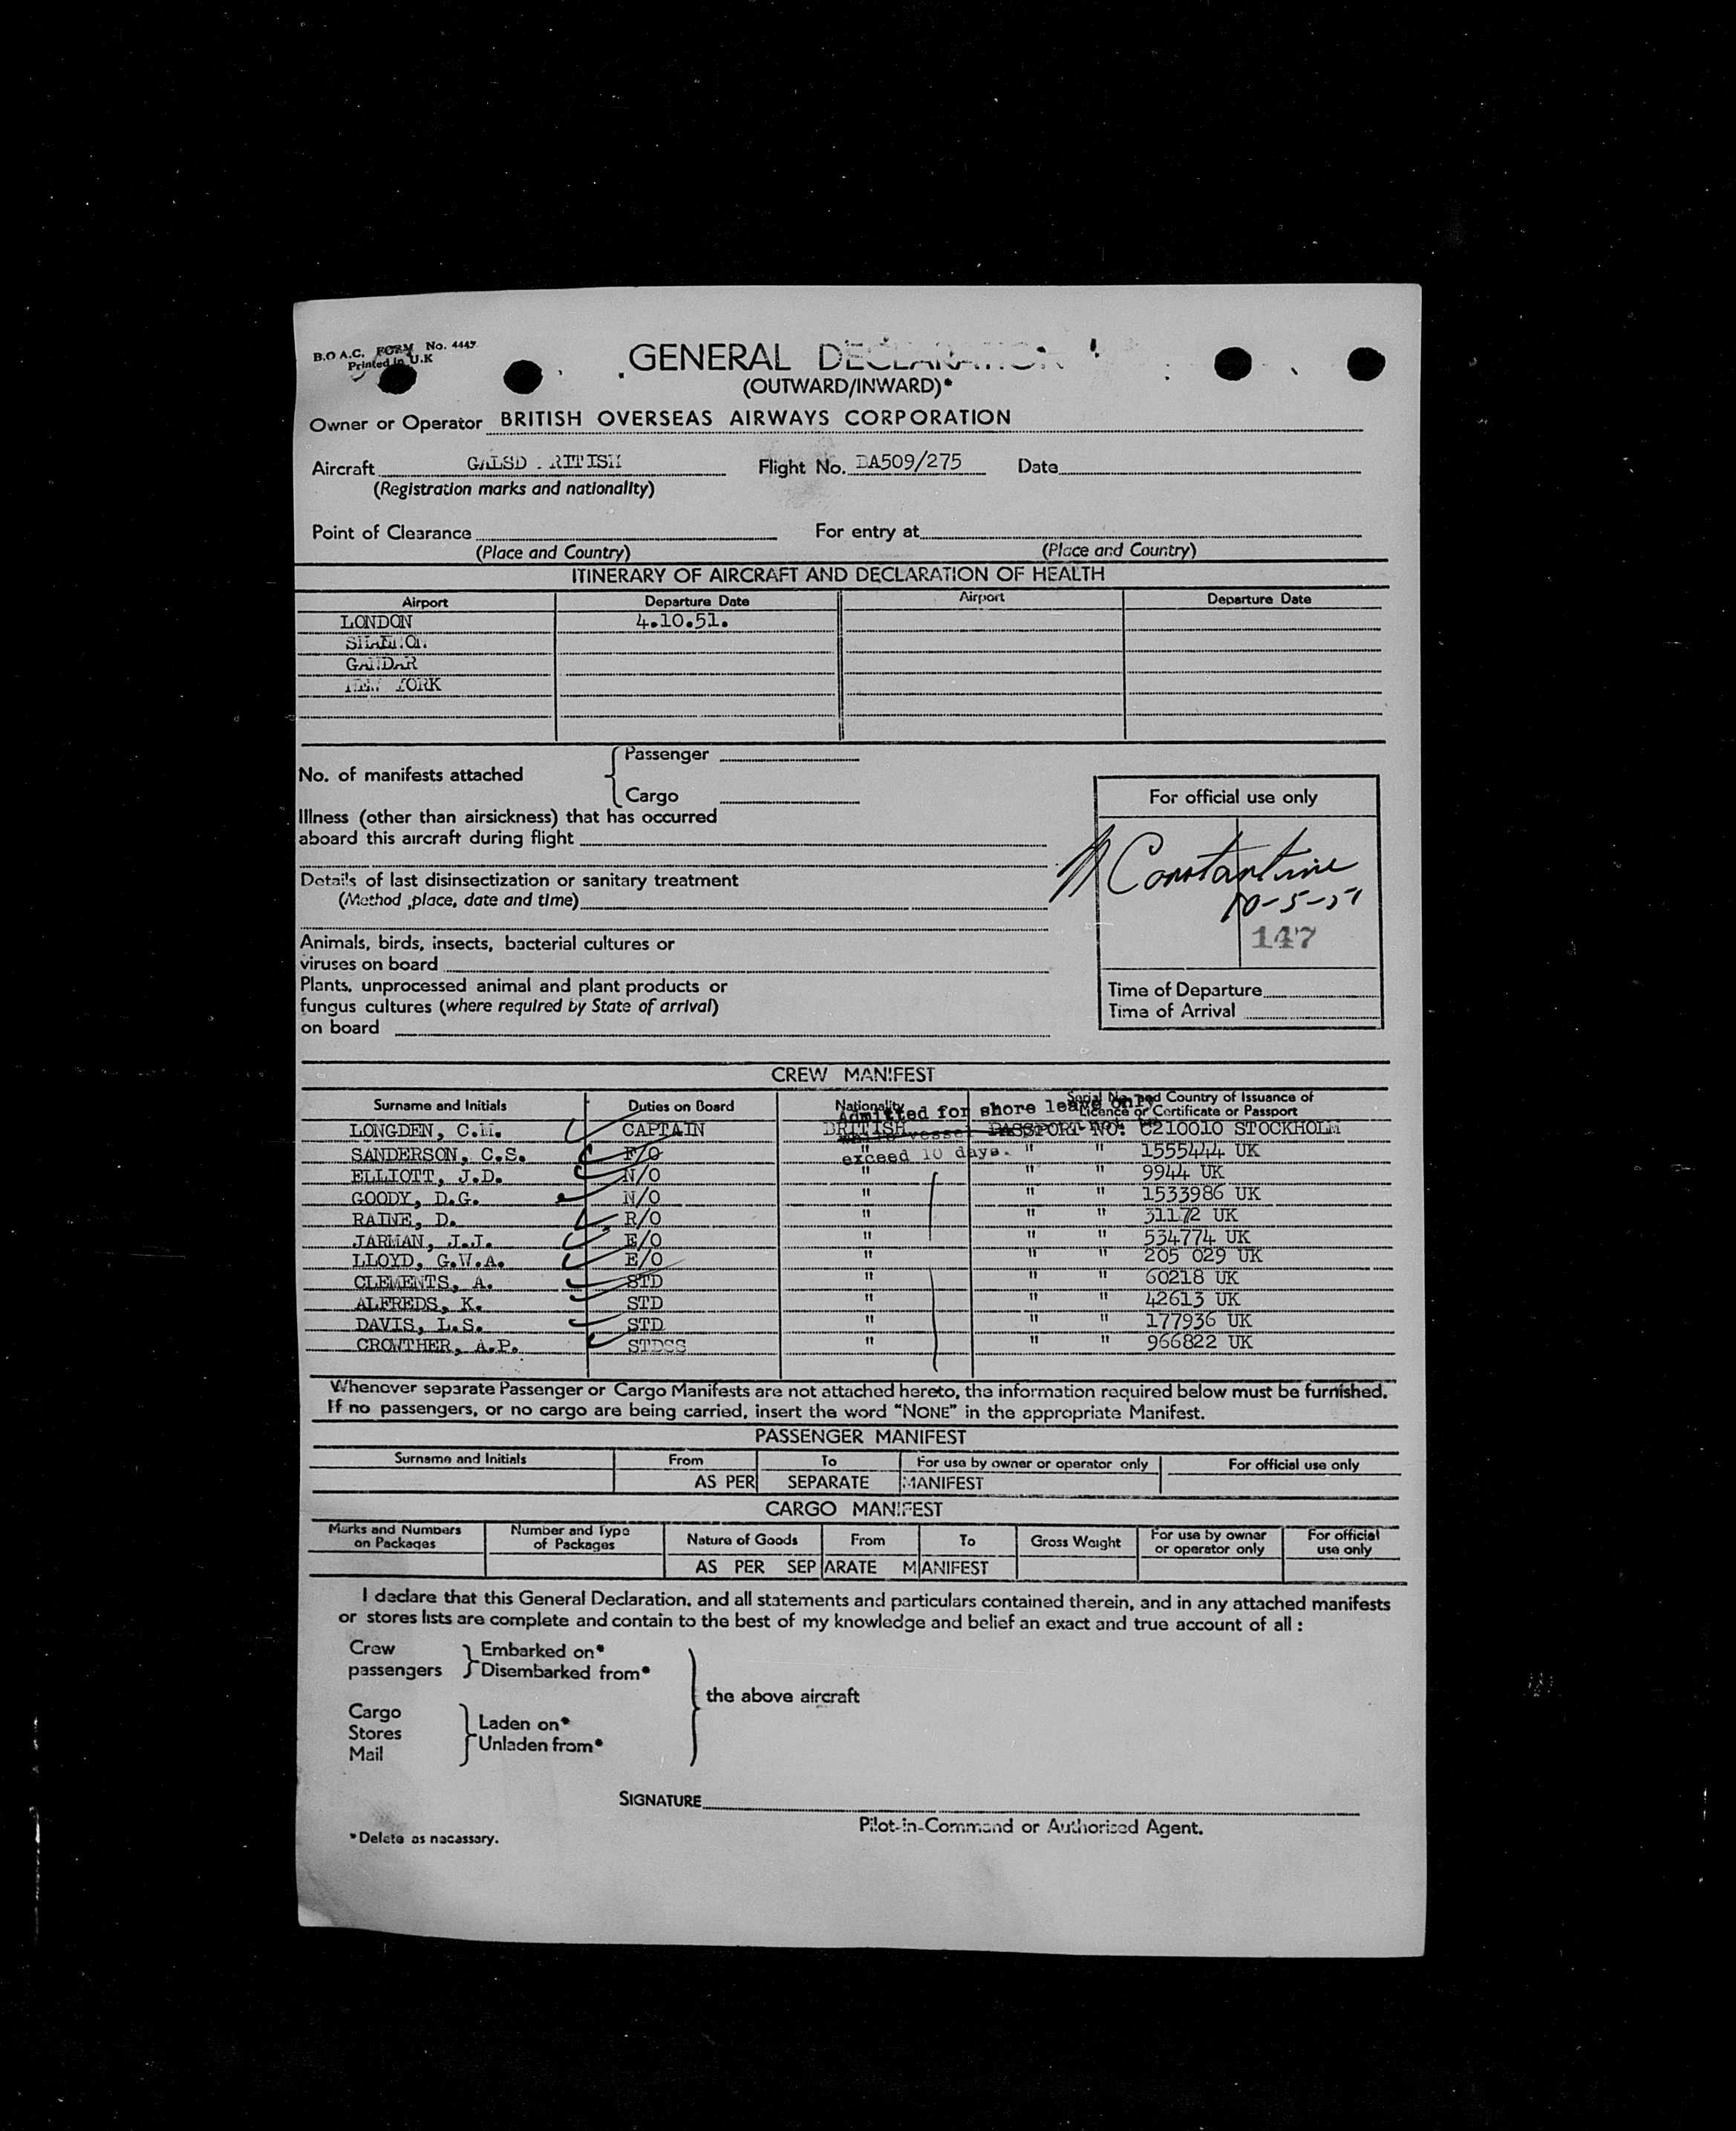 B.O A.C. FORM No. 4447
Printed in U.K
GENERAL DECLARATION
(OUTWARD/INWARD)*
Owner or Operator BRITISH OVERSEAS AIRWAYS CORPORATION
Aircraft GALSD Flight No. BA509/275 Date
(Registration marks and nationality)
Point of Clearance For entry at
(Place and Country) (Place and Country)
ITINERARY OF AIRCRAFT AND DECLARATION OF HEALTH
Airport Departure Date Airport Departure Date
LONDON 4.10.51.
SHANNON
GANDAR
NEW YORK
No. of manifests attached { Passenger
Cargo
For official use only
Illness (other than airsickness) that has occurred
aboard this aircraft during flight
Constantine
Details of last disinsectization or sanitary treatment
(Method ,place, date and time)
10-5-51
147
Animals, birds, insects, bacterial cultures or
viruses on board
Plants, unprocessed animal and plant products or
fungus cultures (where required by State of arrival)
on board
Time of Departure
Time of Arrival
CREW MANIFEST
Surname and Initials Duties on Board Nationality Serial No. and Country of Issuance of
Licence or Certificate or Passport
Admitted for shore leave only
while vessel
exceed 10 days.
LONGDEN, C.M. CAPTAIN BRITISH PASSPORT NO: C210010 STOCKHOLM
SANDERSON, C.S. F/O " " " 1555444 UK
ELLIOTT, J.D. N/O " " " 9944 UK
GOODY, D.G. N/O " " " 1533986 UK
RAINE, D. R/O " " " 31172 UK
JARMAN, J.J. E/O " " " 534774 UK
LLOYD, G.W.A. E/O " " " 205 029 UK
CLEMENTS, A. STD " " " 60218 UK
ALFREDS, K. STD " " " 42613 UK
DAVIS, L.S. STD " " " 177936 UK
CROWTHER, A.P. STDSS " " " 966822 UK
Whenever separate Passenger or Cargo Manifests are not attached hereto, the information required below must be furnished.
If no passengers, or no cargo are being carried, insert the word "NONE" in the appropriate Manifest.
PASSENGER MANIFEST
Surname and Initials From To For use by owner or operator only For official use only
AS PER SEPARATE MANIFEST
CARGO MANIFEST
Marks and Numbers on Packages Number and Type of Packages Nature of Goods From To Gross Weight For use by owner or operator only For official use only
AS PER SEPARATE MANIFEST
I declare that this General Declaration, and all statements and particulars contained therein, and in any attached manifests
or stores lists are complete and contain to the best of my knowledge and belief an exact and true account of all :
Crew } Embarked on*
passengers Disembarked from*
the above aircraft
Cargo
Stores } Laden on*
Mail Unladen from*
SIGNATURE
Pilot-in-Command or Authorised Agent.
*Delete as necessary.